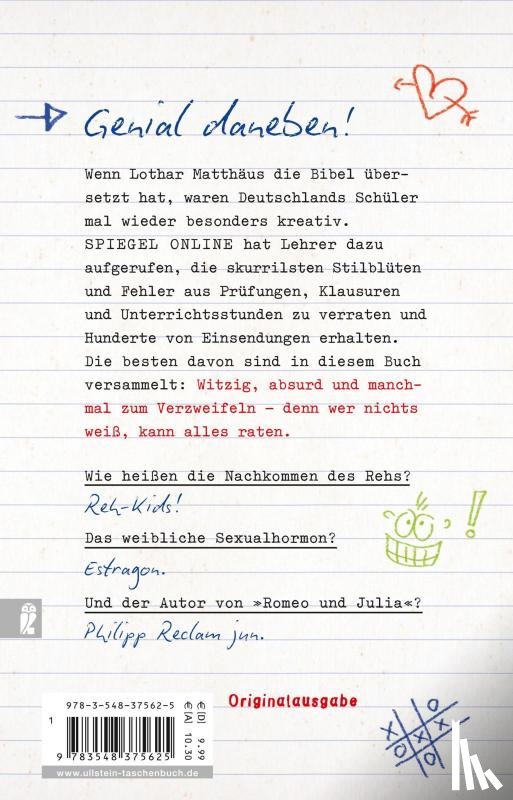 Genial daneben!
Wenn Lothar Matthäus die Bibel über-
setzt hat, waren Deutschlands Schüler
mal wieder besonders kreativ.
SPIEGEL ONLINE hat Lehrer dazu
aufgerufen, die skurrilsten Stilblüten
und Fehler aus Prüfungen, Klausuren
und Unterrichtsstunden zu verraten und
Hunderte von Einsendungen erhalten.
Die besten davon sind in diesem Buch
versammelt: Witzig, absurd und manch-
mal zum Verzweifeln – denn wer nichts
weiß, kann alles raten.
Wie heißen die Nachkommen des Rehs?
Reh-Kids!
Das weibliche Sexualhormon?
Estragon.
Und der Autor von »Romeo und Julia«?
Philipp Reclam jun.
Originalausgabe
978-3-548-37562-5
€ [D] 9.99
€ [A] 10.30
1
9 783548 375625
www.ullstein-taschenbuch.de